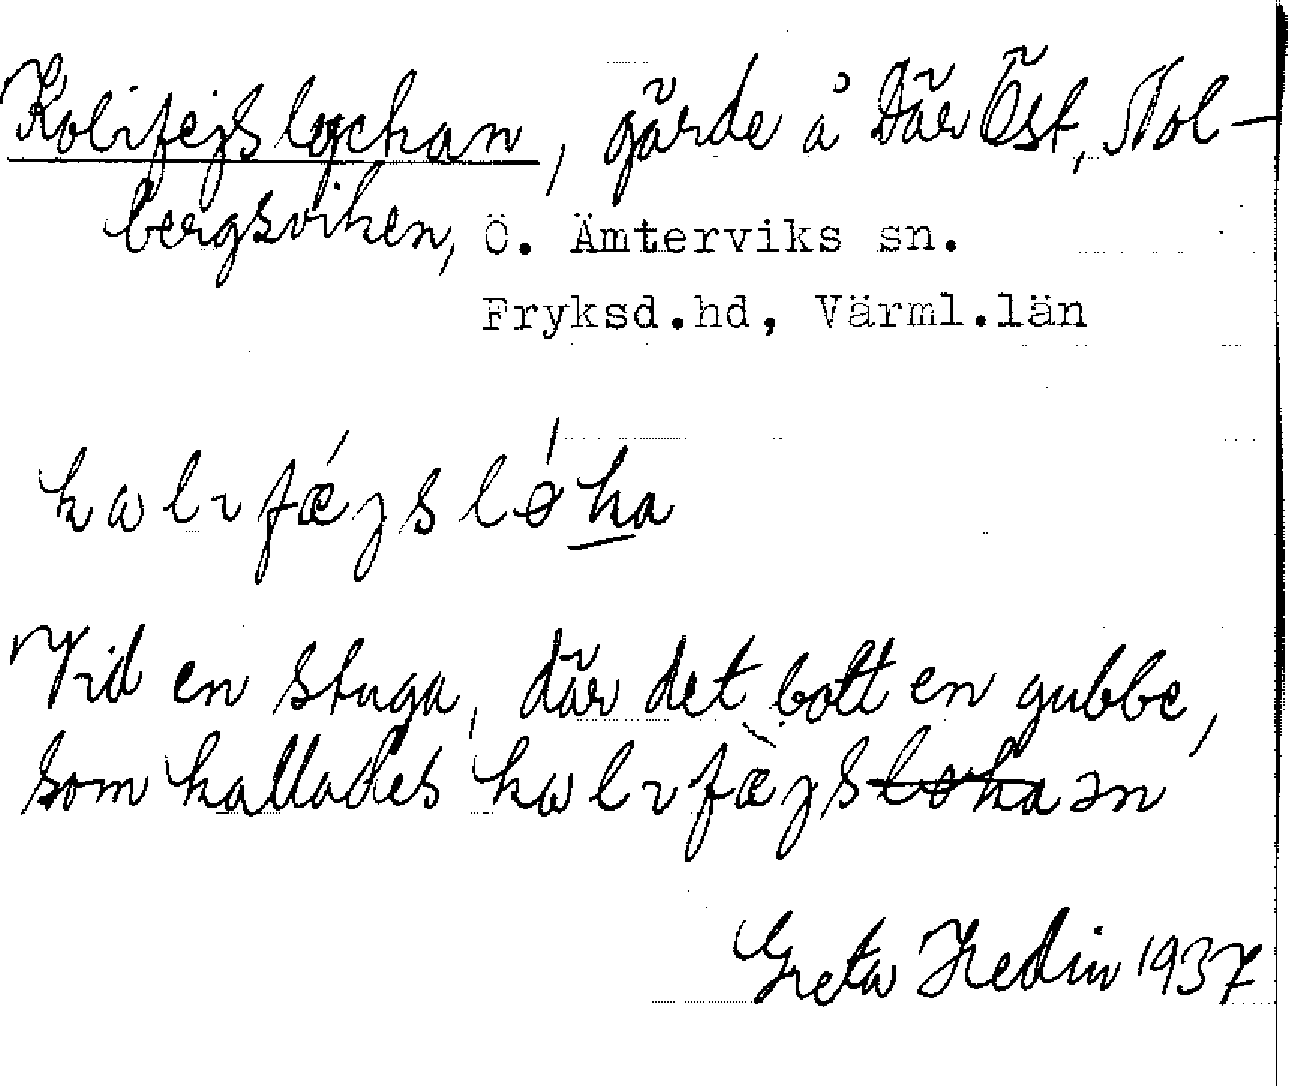 Kolifejslyckan, gärde å Där Öst, Nol-
bergsviken, Ö. Ämterviks sn.
Fryksd.hd, Värml.län
Vid en stuga, där det bott en gubbe,
som kallades
Greta Hedin 1937